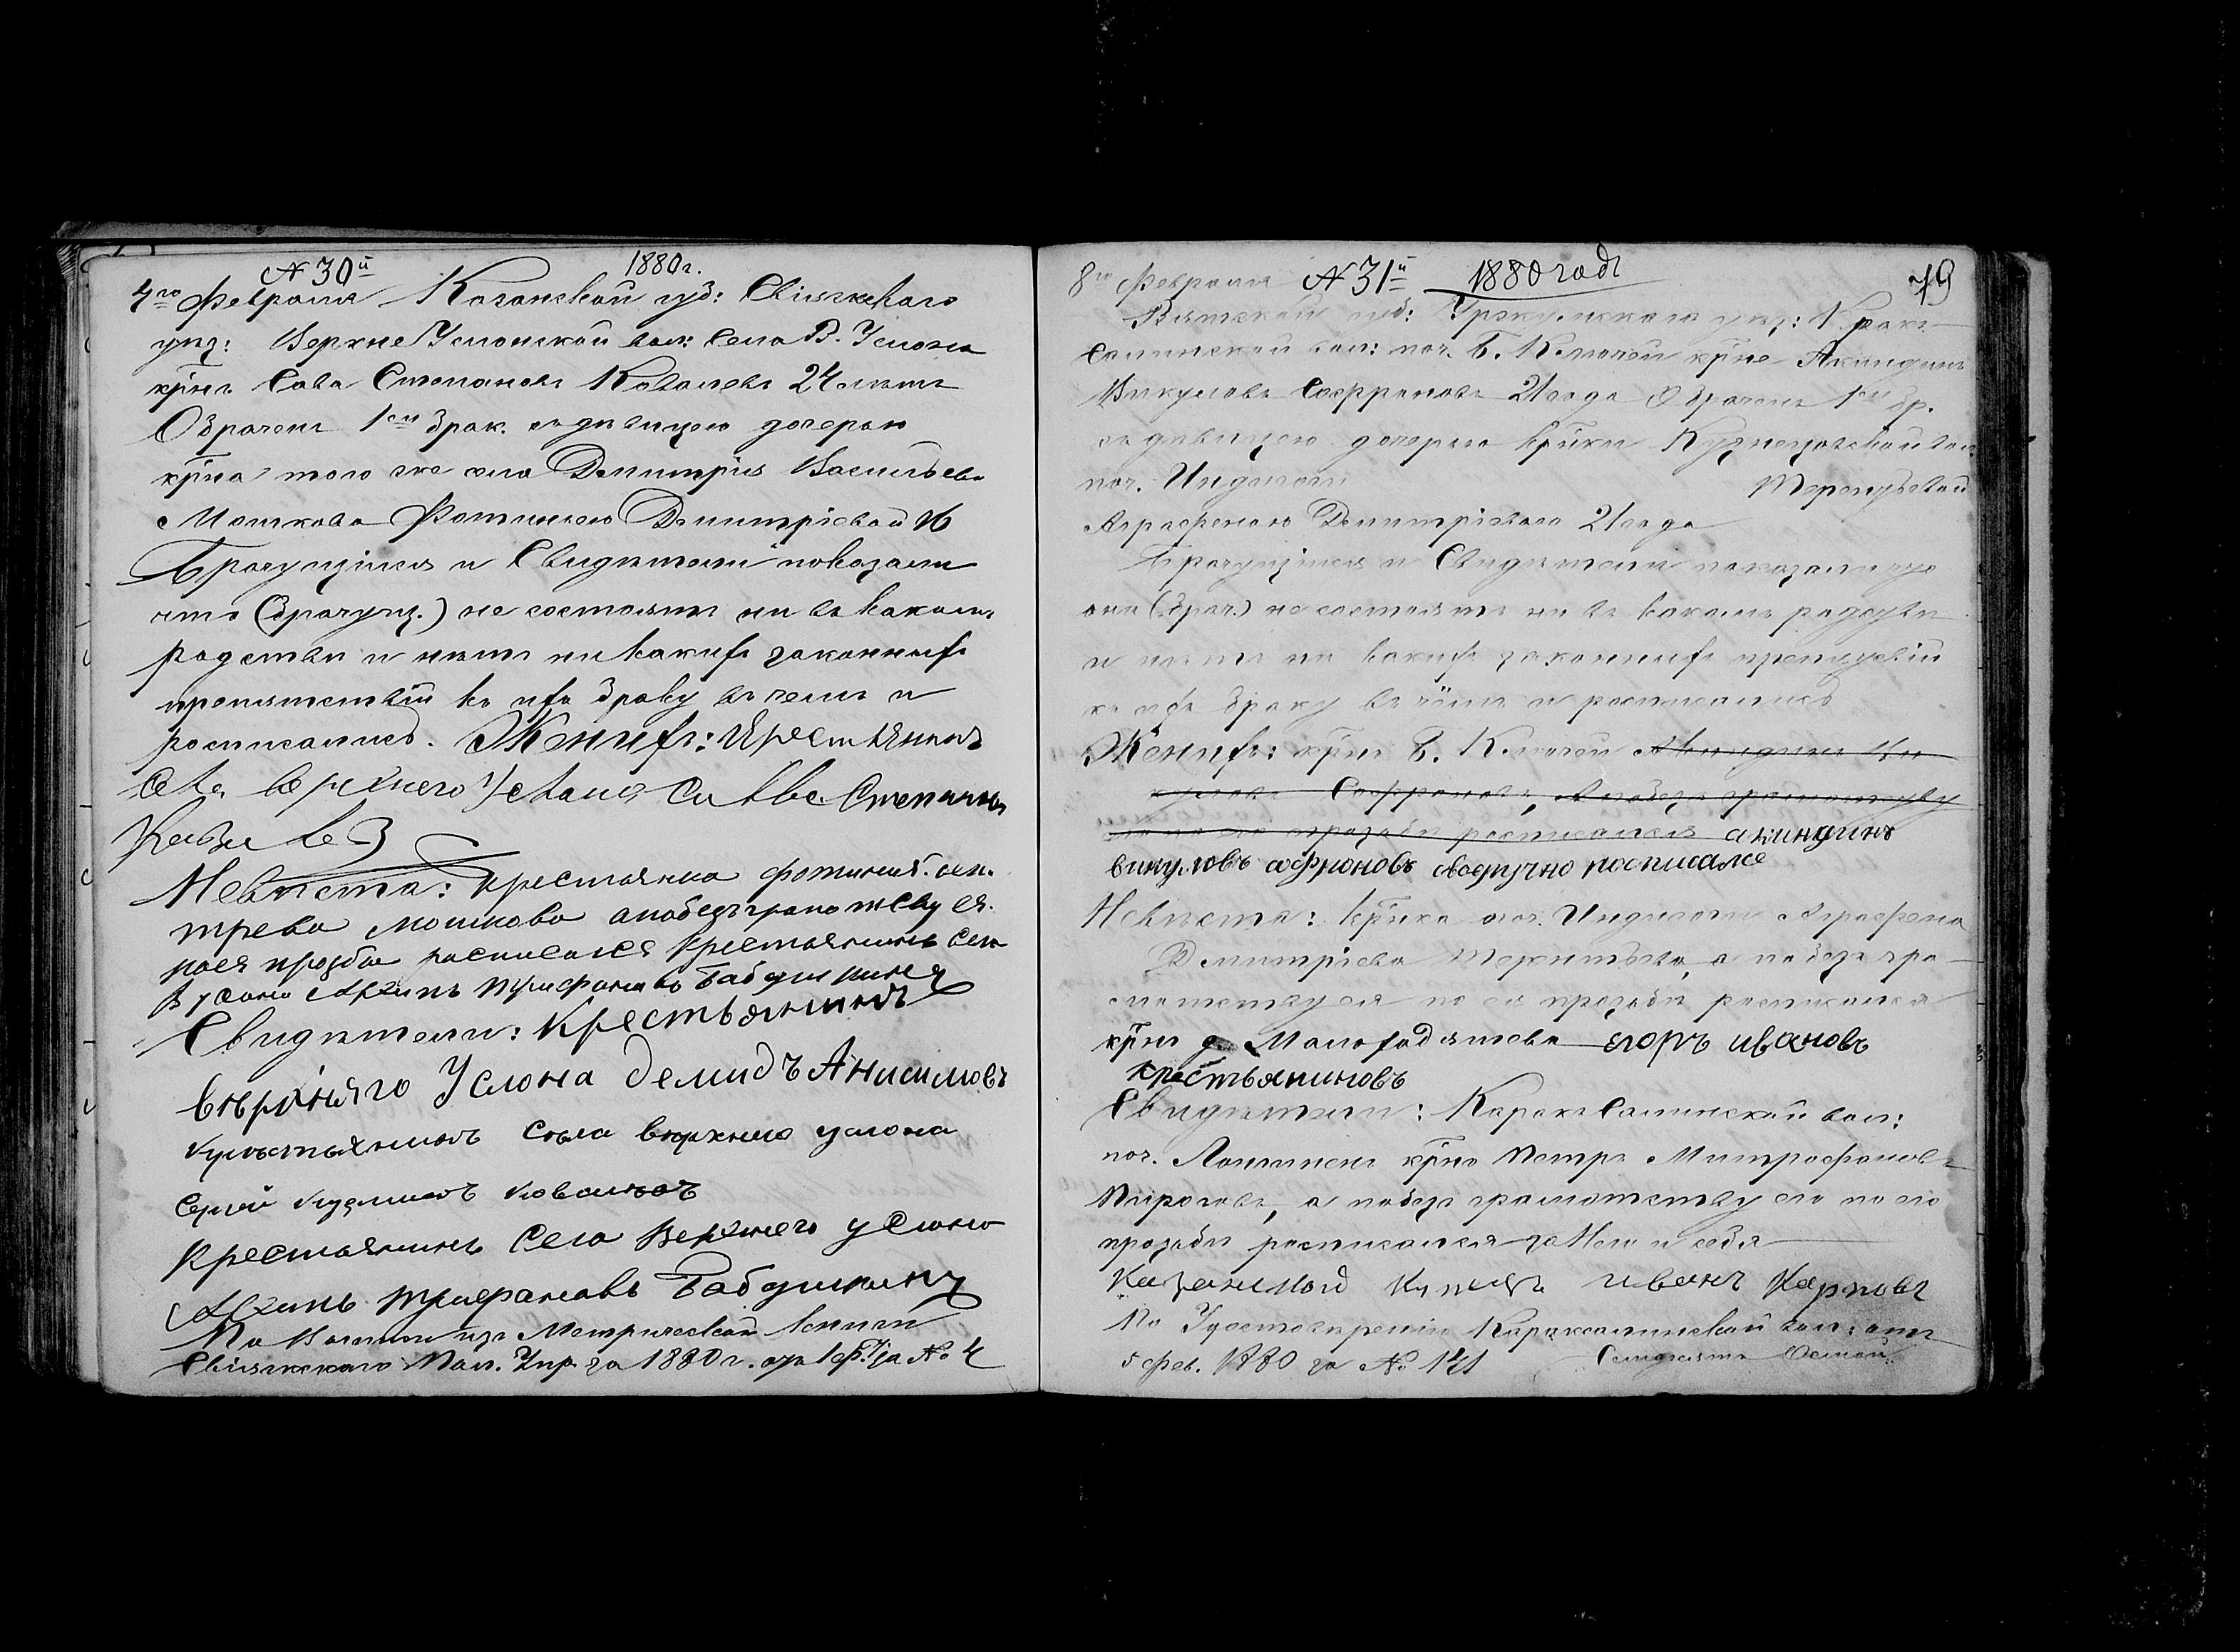 № 30й 1880 г.
4го Февраля Казанской губ: Свіяжскаго
уѣз: Верхне Услонской вол: Села В. Услона
кр̃нъ Сава Степановъ Ковалевъ 24 лѣтъ
Обрачен 1ем брак. съ дѣвицею дочерью
кр̃на того же села Димитрія Васильева
Мошкова Фотиньею Димитріевой 16
Брачущіися и Свидѣтели показали
что (брачущ.) не состоятъ ни въ какомъ
родствѣ и нѣтъ никакихъ законныхъ
препятствій къ ихъ браку въ чемъ и
росписались. Женихъ: Крестьянинъ
села верхнего Услона Савва Степановъ
Ковалев
Невѣста: крестьянка фотиния
трева мошкова а по безъграмотству ея
поея прозбы росписался крестьянинъ сел
В услона Архипъ Трифоновъ Бабушкинъ
Свидѣтели: Крестьянинъ
верхняго Услона демидъ Анисимовъ
крѣстьянинъ съла верхнего услона
Сергей кузминъ ковалевъ
крестьянинъ села Верхнего услона
Архипъ трифановъ Бабушкинъ
По Выписи изъ Метрической книги
Свіяжскаго Пол. Упр. за 1880 г. отъ 1 ф. за № 4
8го Февраля № 31й 1880 годъ 79
Вятской губ: Уржумскаго уѣз: Кракъ-
Солинской вол: поч. Б. Ключей кр̃не Акиндинъ
Викуловъ Софроновъ 21 года Обрачен 1ем бр.
съ дѣвицею дочерью кр̃нки Кузнецовской вол:
поч. Индигоги Терентьевой
Аграфеною Димитріевою 21 года
Брачущіися и Свидѣтели показали что
они (брач.) не состоятъ ни въ какомъ родствѣ
и нѣтъ ни какихъ законныхъ препятствій
къ ихъ браку въ чёмъ и росписались
Женихъ: кр̃нъ Б. Ключей Акиндинъ Ви
куловъ Софроновъ, А побезъграмотству
его по его прозьбѣ росписался акиндинъ
викуловъ софроновъ своеручно росписалсе
Невѣста: кр̃нка поч. Индигоги Аграфена
Димитріева Терентьева, а по безъ гра-
мотству ея по ея прозьбѣ росписался
кр̃нъ д. Малородятева егоръ ивановъ
крестьяниновъ
Свидѣтели: КаракъСолинской вол:
поч. кр̃нъ Петръ Митрофановъ
Пироговъ, а побезъ грамотству его по его
прозьбѣ росписался за Него и себя
Казанской Купецъ иванъ Карповъ
По Удостовѣренію Каракъсолинской вол: отъ
5 фев. 1880 за № 141